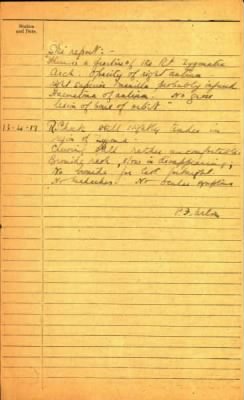 Station
and Date.
Ski report: -
"There is a fracture of the Rt. Zygomatic
Arch. Opacity of right antrum
Left superior maxilla probably injured
Haematoma of antrum. No gross
lesion of base of orbit."
13-4-17 R. Cheek still slightly tender in
region of zygoma.
Chewing still rather uncomfortable
Bromide rash, slow in disappearing,
No bromide for last fortnight.
No headaches. No ocular symptoms